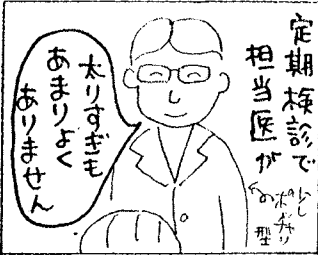 定期検診で
担当医が
少し
ポッチャリ
型
太りすぎも
あまりよく
ありません